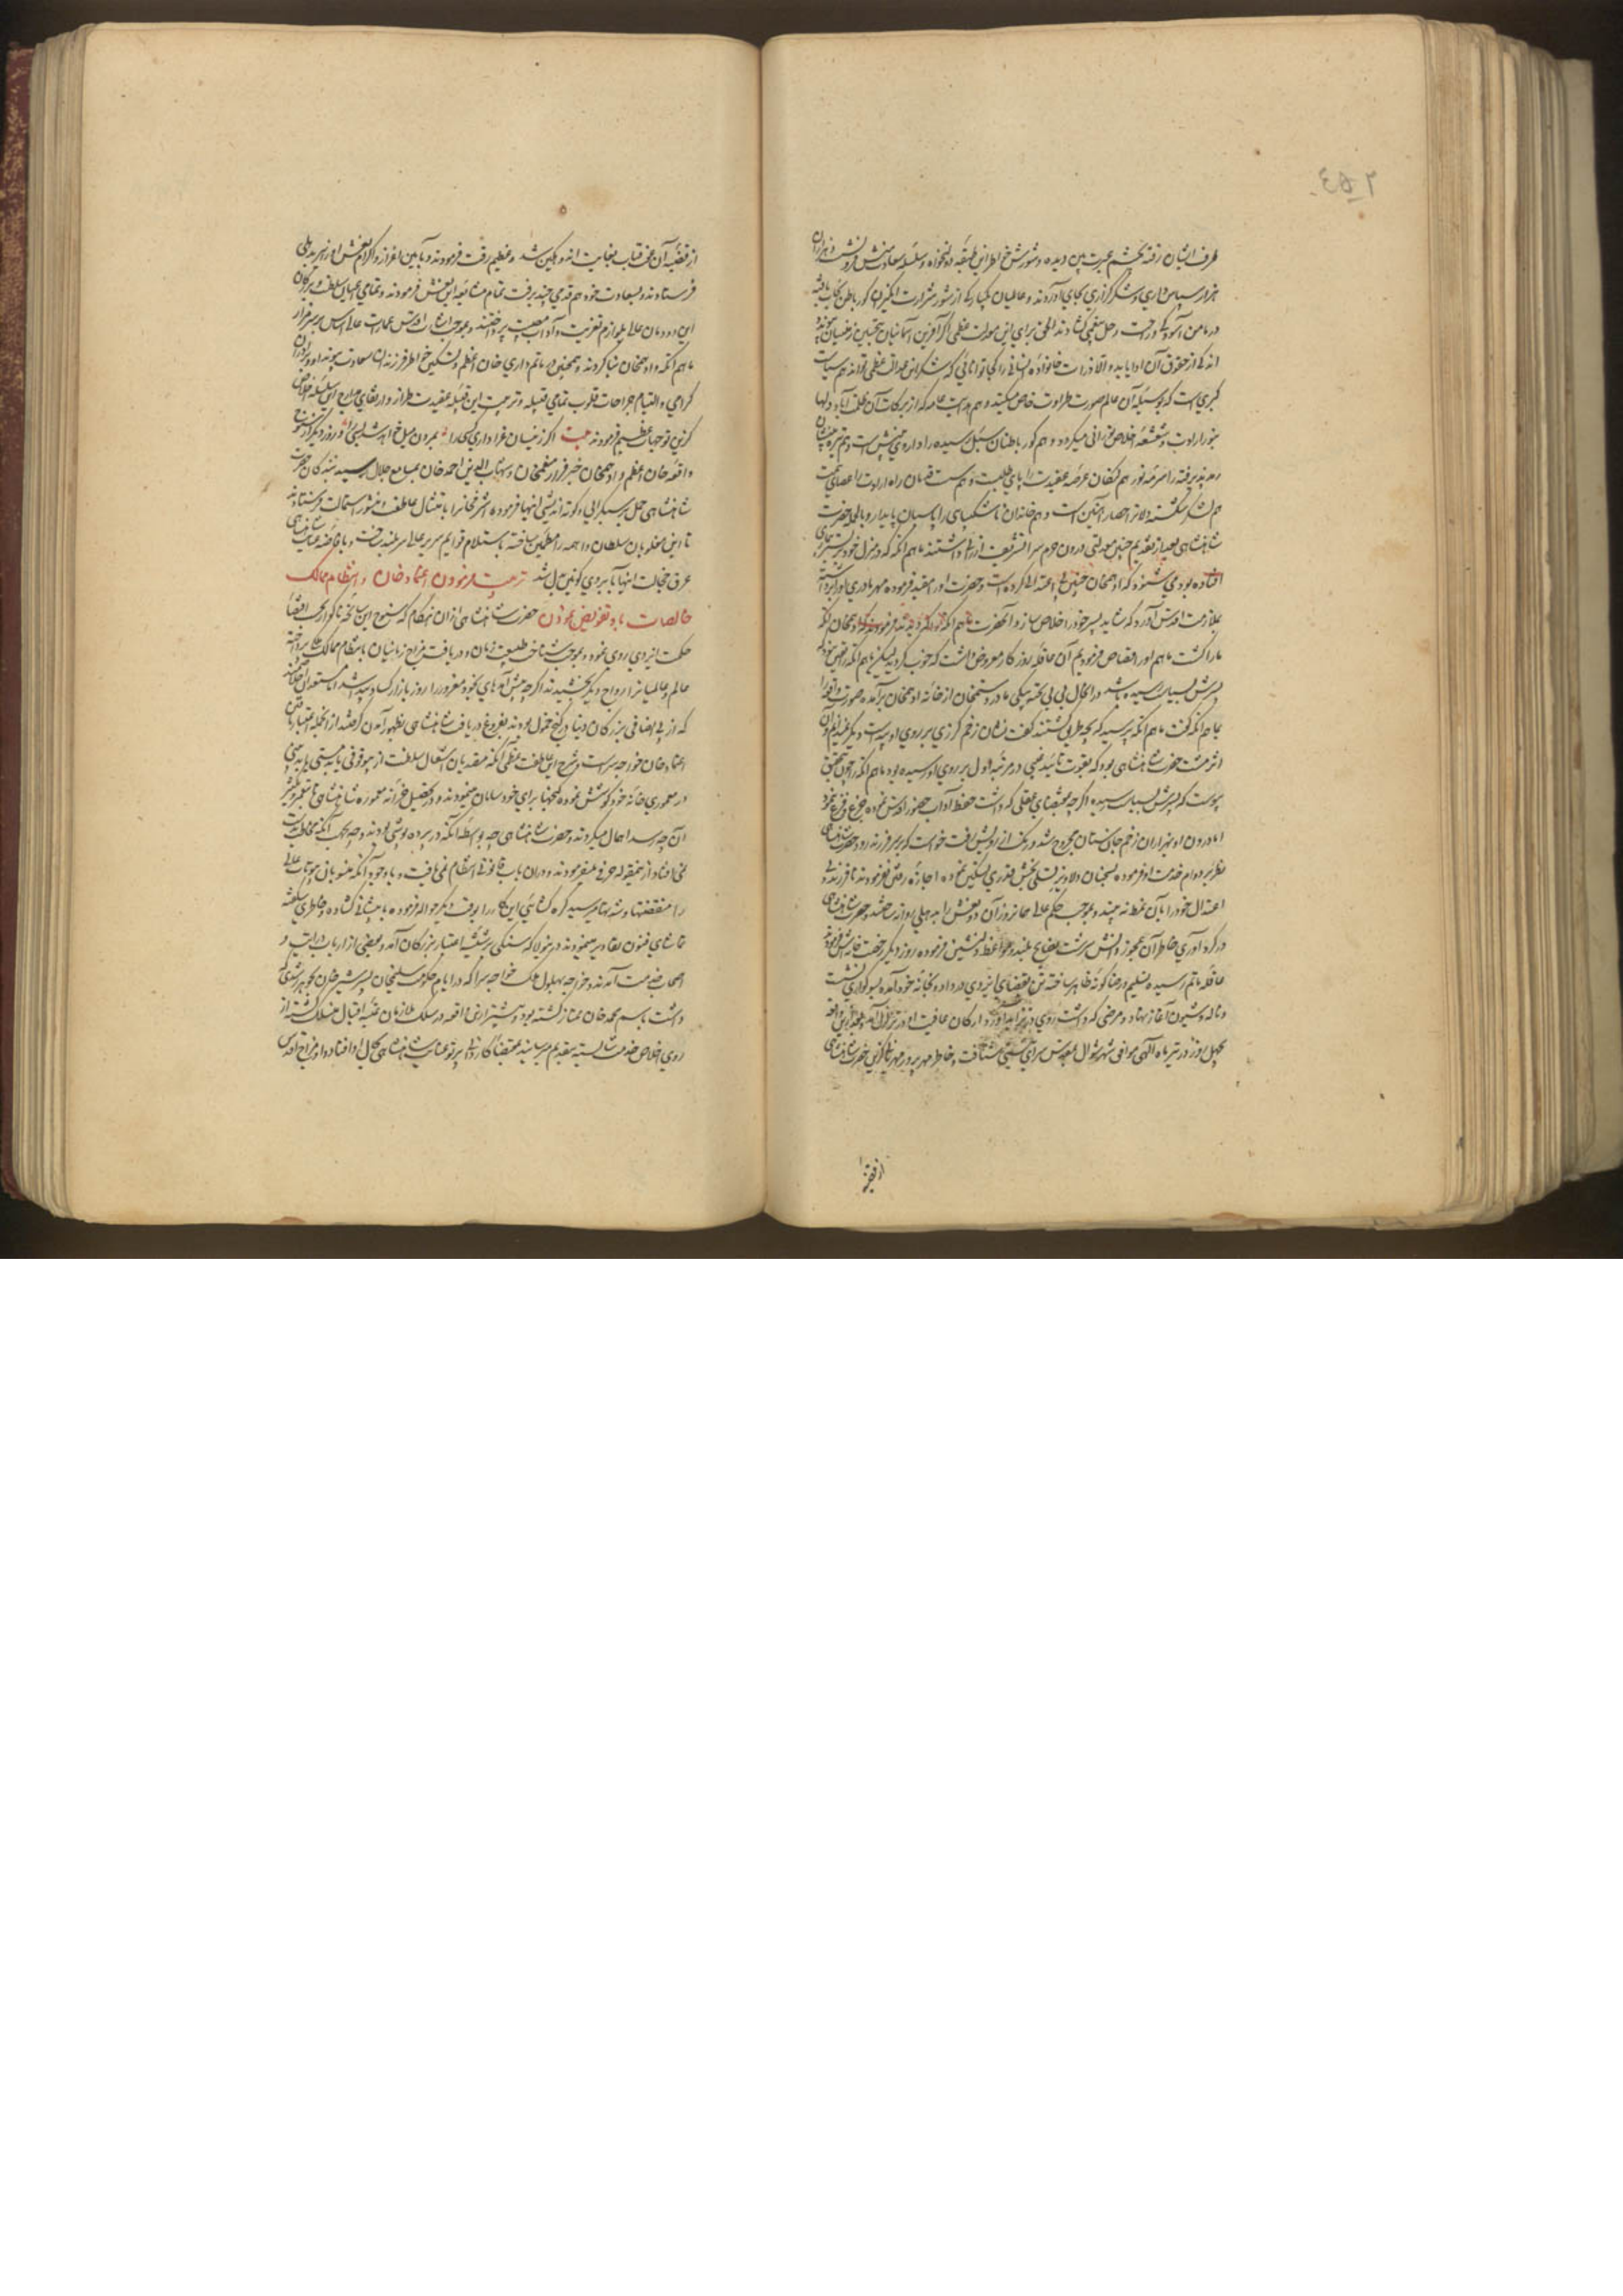 ۴۵۲
طرف ایشان رفته بچشم عبرت بین دیده و شورش خاطر این طبقه دولتخواه و سلسله سعادت منش فرو نشست و هزاران
هزار سپاس داری و شکر گزاری بجای آوردند و عالمیان یکبارگی از شور شرارت انگیزان کور باطن نجات یافته
در مامن آسودگی و راحت رحل مقیمی گشادند الحق برای این معدلت عظمی اگر آفرین آسمانیان بتحسین زمینیان پیوندد
اندکی از حقوق آن ادا یابد والا ذرات خانواده انسانی را کجا توانایی که شکر این عدالت عظمی تواند هم سیاست
کبری است که بوسیله آن عالم صورت طراوت خاص میگیرد و هم هدایت عامه که از برکات آن ظلمت آباد دلها
بنور ارادت و شعشعه اخلاص نورانی میگردد و هم کور باطنان سبل رسیده را داروی بینش است و هم تیره بینشان
رمد پذیرفته را سرمه نور هم لنگان عرصه عقیدت را پای طلبست و هم سست قدمان راه ارادت را عصای همت
هم لشکر شکسته دلان را حصار آهنین است و هم خاندان ناشکیبای را پاسبان پایدار و بالجمله حضرت
شاهنشاهی بعد از تقدیم چنین معدلتی درون حرم سرا تشریف ارزانی داشتند ماهم انگه که در منزل خود بر بستر بیماری
افتاده بود می شنود که ادهم خان چنین بی اعتدالی کرده است و حضرت او را مقید فرموده مهر مادری او را گرفته
بملازمت اقدس آورد که شاید پسر خود را خلاص سازد آنحضرت ماهم انگه را که دیدند فرمودند که ادهم خان انگه
ما را کشت ما هم او را قصاص فرمودیم آن عاقله روزگار معروض داشت که خوب کردید لیکن ماهم انگه را یقین نبود که
پسرش بسیاست رسیده باشد در این حال بی بی نجیبه بیگی مادر دستم خان از خانه ادهم خان برآمده صورت واقعه را
بماهم انگه گفت ماهم انگه پرسید که بچه طریق کشتند گفت نشان زخم گرزی بر روی او پیداست دیگر نمیدانم و آن
اثر مشت حضرت شاهنشاهی بود که بقوت تائید غیبی در مرتبه اول بر روی او رسیده بود ماهم انگه را چون بتحقیق
پیوست که پسرش بسیاست رسیده اگرچه بمقتضای عقلی که داشت حفظ آداب حضور اقدس نموده جزع و فزع نکرد
اما درون او بهزاران زخم جان ستان مجروح شد و رنگ از رویش رفت خواست که بر سر فرزند رود حضرت شاهنشاهی
نظر بر دوام خدمت او فرموده بسخنان دلاویز تسلی بخش قدری تسکین نموده اجازه رفتن نفرمودند تا فرزند بی
اعتدال خود را بآن نمط نه بیند و بموجب حکم عالی همانروز آن دو نعش را بدهلی روانه ساختند و حضرت شاهنشاهی
در گرد آوری خاطر آن عجوزه دانش سرشت بنصایح بلند و مواعظ دلنشین فرموده روز دیگر رخصت خانه اش فرمودند
عاقله ماتم رسیده تسلیم و رضا گونه ظاهر ساخته تن بقضای ایزدی در داد و بخانه خود آمده بسوگواری نشست
و ناله و شیون آغاز نهاد و مرضی که داشت روی در تزاید آورد و ارکان عافیت او در تزلزل آمد و بعد از این واقعه
بچهل روز در تیر ماه الهی موافق شهر شوال بعدم سرای نیستی شتافت و خاطر مهر پرور مهربانی گزین حضرت شاهنشاهی
از قضیه
از قضیه آن عفت قباب بغایت اندوهگین شد و عظیم رقت فرمودند و بآیین اعزاز و اکرام نعش او را نیز بدهلی
فرستادند و بسعادت خود هم قدمی چند برفت تمام مشایعه این نعش فرمودند و تمامی اعیان سلطنت و بزرگان
این دودمان عالی بلوازم تعزیت و آداب مصیبت پرداختند و بموجب اشارت اقدس عمارت عالی اساس بر سر مزار
ماهم انگه و ادهم خان بنا کردند و همچنین در ماتم داری خان اعظم و تسکین خاطر فرزندان سعادت پیوند او و برادران
گرامی و التیام جراحات قلوب تمامی قبیله و تربیت این قبیله عقیدت طراز و ارتقای مدارج این سلسله اخلاص
گزین توجهات عظیم فرمودند بیت اگر زینسان غم اداری کسی را * بمردن میل خواهد شد بسی را * و روز دیگر از سنوح
واقعه خان اعظم و ادهم خان خبر فرار منعم خان و شهاب الدین احمد خان بمسامع جلال رسید بندگان حضرت
شاهنشاهی حمل بر سبکرایی و کوته اندیشی اینها فرموده اشرف خان را با تمثال عاطفت و منشور استمالت فرستادند
تا این مغلوبان سلطان واهمه را مطمئن ساخته باستلام قوایم سریر عالی سربلند ساخت و بافاضه عنایت شاهنشاهی
عرق خجالت اینها بآبروی کونین بدل شد تربیت فرمودن اعتماد خان و انتظام ممالک
خالصات باو تفویض نمودن حضرت شاهنشاهی از آن هنگام که سنوح این سانحه ناگوار بحسب اقتضا
حکمت ایزدی روی نمود و بموجب شناخت طبیعت زمان و دریافت مزاج زمانیان بانتظام ممالک عالی پرداخته
عالم و عالمیان را رواج دیگر بخشیدند اگرچه پیش آمدهای بیخرد مغرور را روز بازار کساد پدید شد اما مستعدان خردمند
که از بی انصافی بزرگان دنیا در کنج خمول بودند بفروغ دریافت شاهنشاهی بظهور آمدن گرفتند از آنجمله اعتبار یافتن
اعتماد خان خواجه سراست و شرح این عاطفت عظمی آنکه متصدیان اشغال سلطنت از بیوقوفی یا بددیانتی
در معموری خانه خود کوشش نموده گنجها برای خود سامان مینمودند و در تحصیل خزانه معموره شاهنشاهی تا بتعمیر و تکثیر
آن چه رسد اهمال میکردند و حضرت شاهنشاهی چه بواسطه آنکه در پرده پوشی بودند و چه بجهت آنکه مخاطب راست
نمی افتاد از این مقوله حرفی نمیفرمودند و در آن باب قانون انتظام نمی یافت و با وجود آنکه منسوبان موهبات عالی
را منقضتها و شبهتها میرسید گره گشایی این کار را بوقت دیگر حواله فرموده با پیشانی گشاده و خاطر شکفته
تماشای فنون تقادیر مینمودند در ینولا که سنگی بر شیشه اعتبار بزرگان آمد و بعضی از ارباب درایت و
اصحاب خدمت آمدند و خواجه بهلول ملک خواجه سرا که در ایام حکومت سلیم خان پسر شیر خان بجوهر رشدی که
داشت باسم محمد خان ممتاز گشته بود و پیشتر از این واقعه در سلک ملازمان عتبه اقبال منسلک گشته از
روی اخلاص خدمت شایسته بتقدیم میرسانید بمقتضای کاردانی پرتو عنایت شاهنشاهی بحال او افتاد و او مزاج اقدس